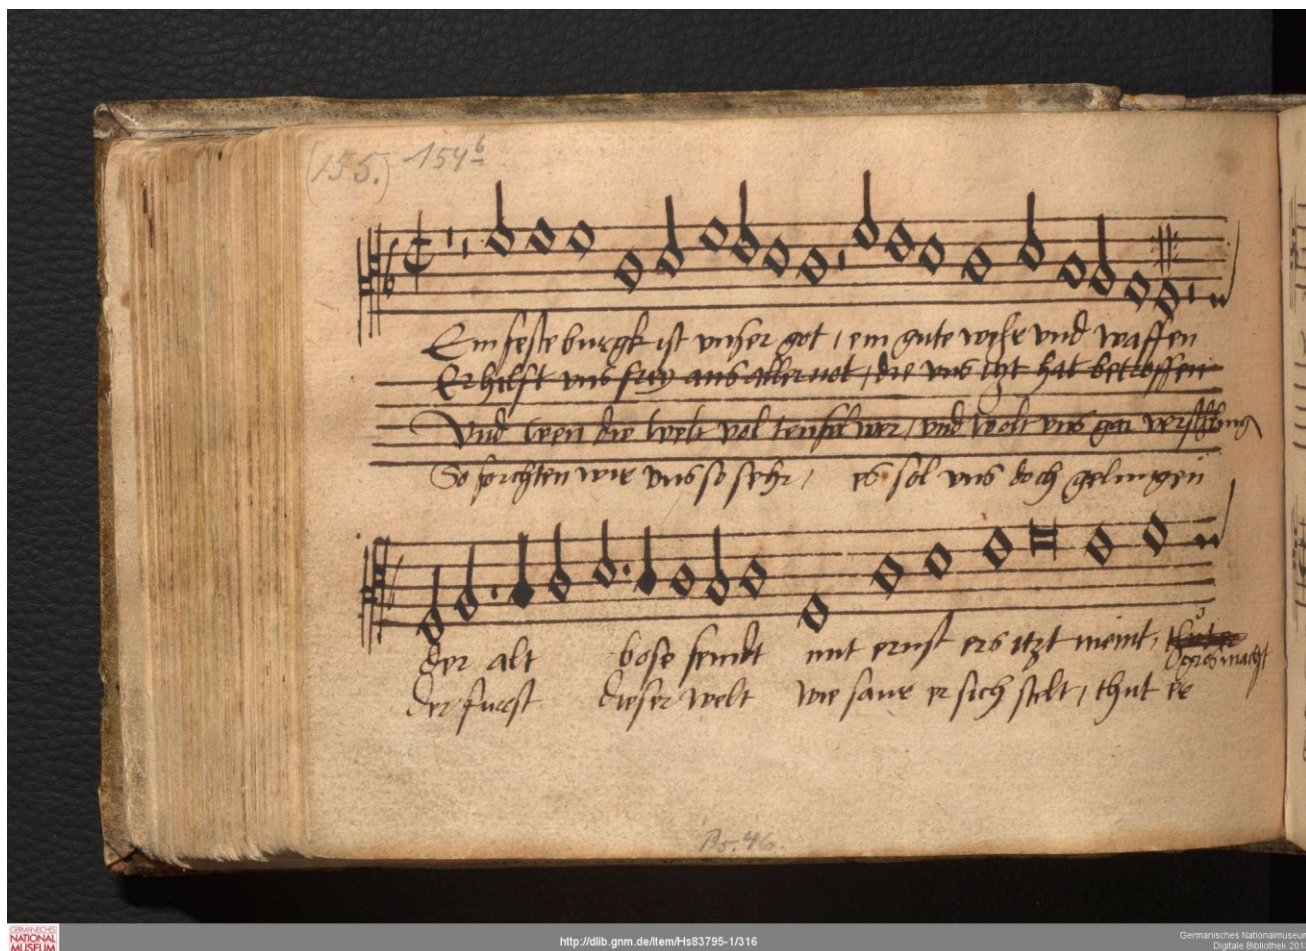 (155.) 154b
Ein feste burgk ist unser got / ein gute wehr und waffen
Er hilfft uns frey aus aller not / die uns itzt hat betroffen
Und wen die welt vol teufel wer / und wolt uns gar verschling
So forchten wir uns so sehr / es sol uns doch gelingen
der alt bose feindt mit ernst ers itzt meint /
gros macht
der furst dieser welt wie saur er sich stelt / thut er
Ps. 46.
GERMANISCHES NATIONAL MUSEUM
http://dlib.gnm.de/item/Hs83795-1/316
Germanisches Nationalmuseum
Digitale Bibliothek